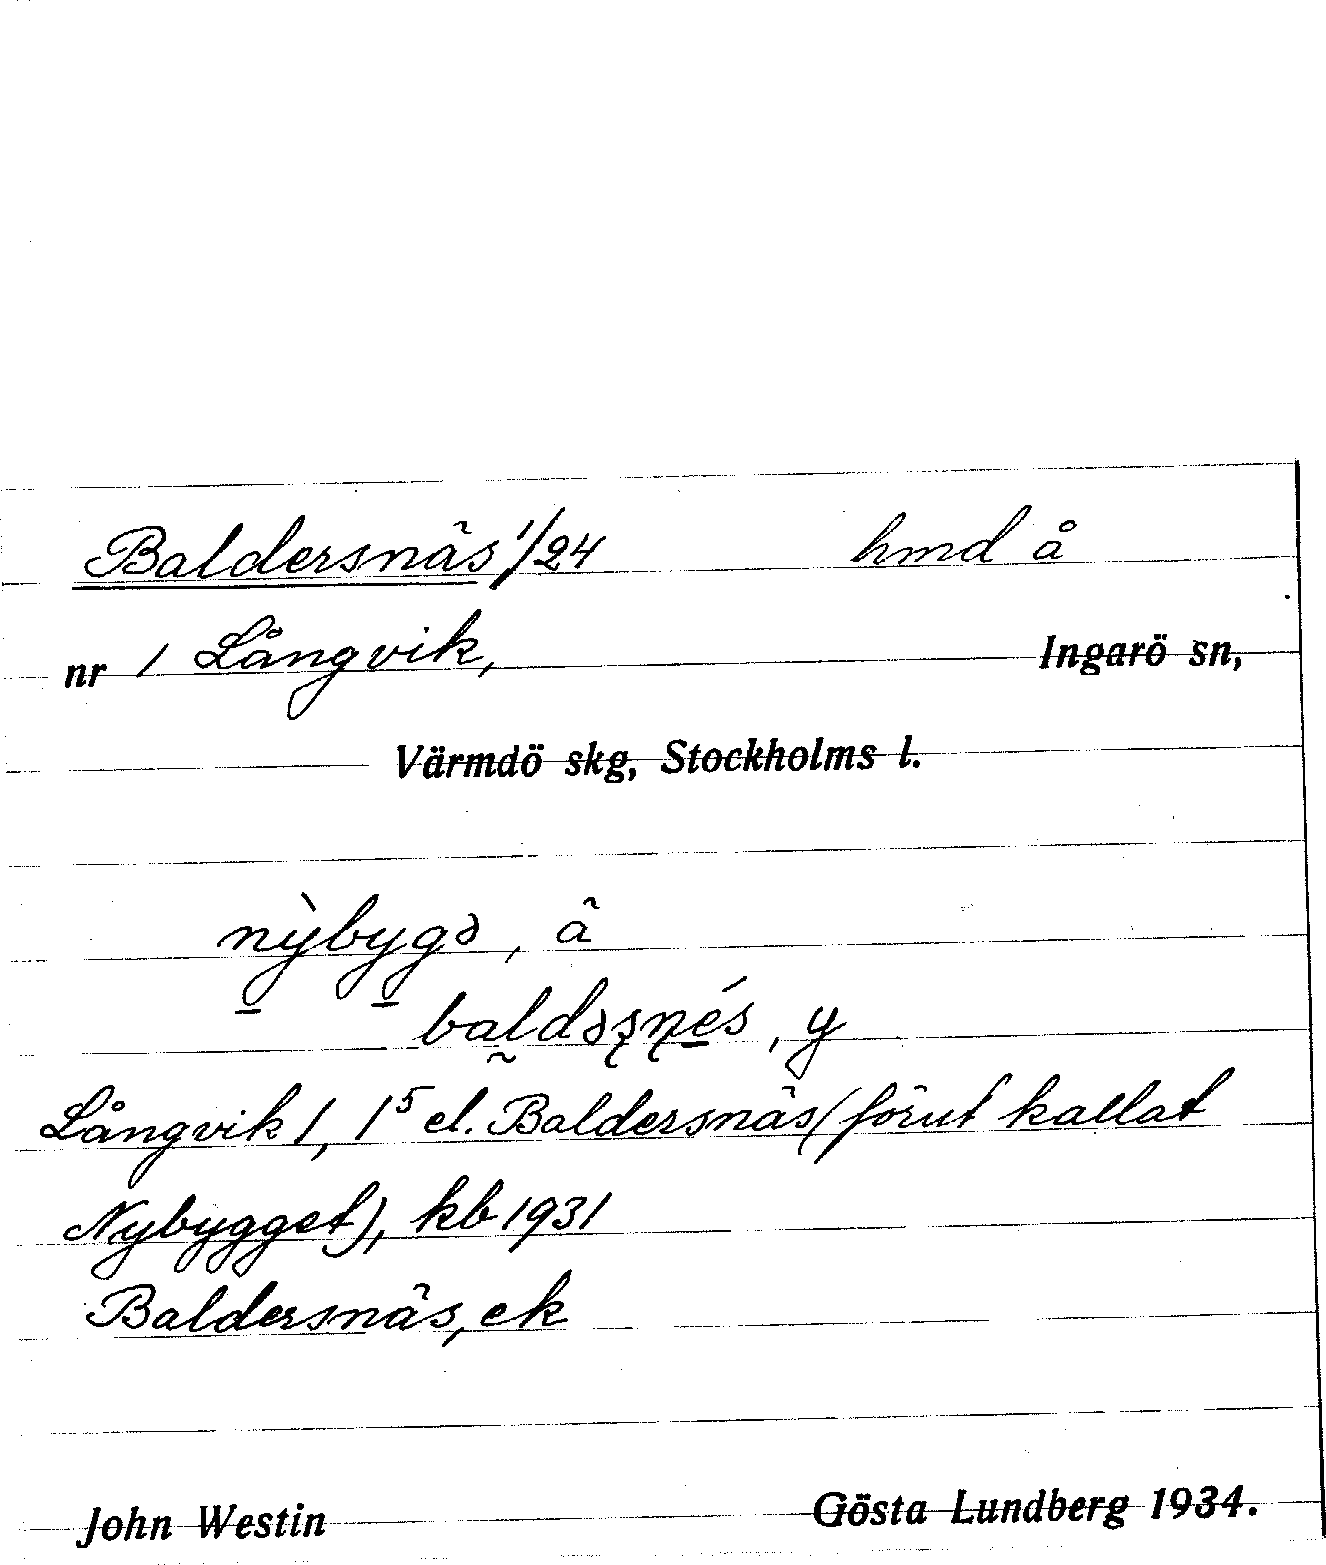 Baldersnäs 1/24 hmd å
nr 1 Långvik, Ingarö sn,
Värmdö skg, Stockholms l.
nỳbygə, ä
baldəʂɳés, y
Långvik 1, 1⁵ el. Baldersnäs (förut kallat
Nybygget), kb 1931
Baldersnäs, ek
John Westin Gösta Lundberg 1934.